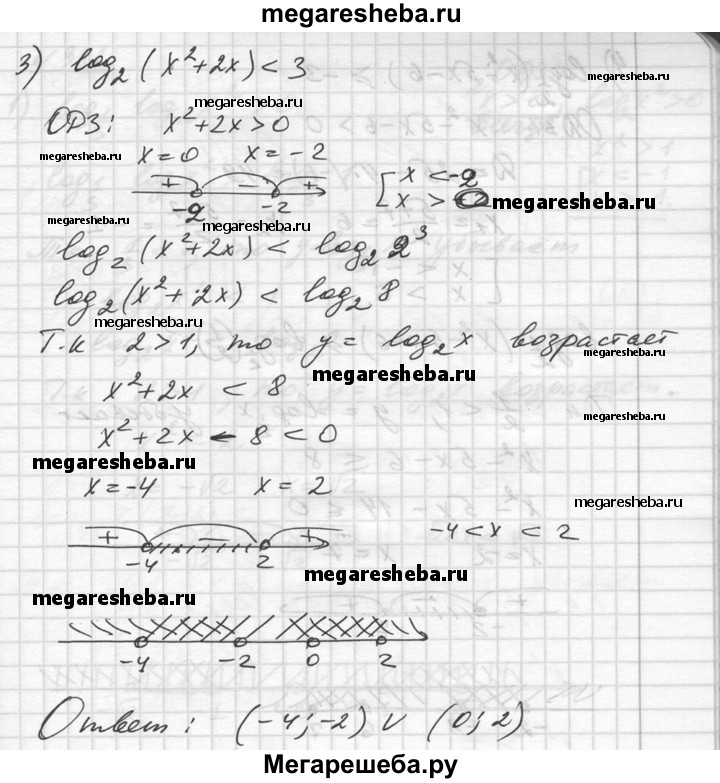 megaresheba.ru
3) log₂(x²+2x) < 3
megaresheba.ru
megaresheba.ru
ОРЗ: x²+2x>0
megaresheba.ru
x=0 x=-2
+ - +
-2 -2
[ x < -2
x >
megaresheba.ru
megaresheba.ru
megaresheba.ru
log₂(x²+2x) < log₂2³
log₂(x²+2x) < log₂8
megaresheba.ru
Т.к 2>1, то y = log₂x возрастает
megaresheba.ru
megaresheba.ru
x²+2x < 8
megaresheba.ru
x²+2x - 8 < 0
megaresheba.ru
x=-4 x=2
megaresheba.ru
+ - +
-4 2
-4 < x < 2
megaresheba.ru
megaresheba.ru
-4 -2 0 2
Ответ: (-4;-2) ∪ (0;2)
Мегарешеба.ру